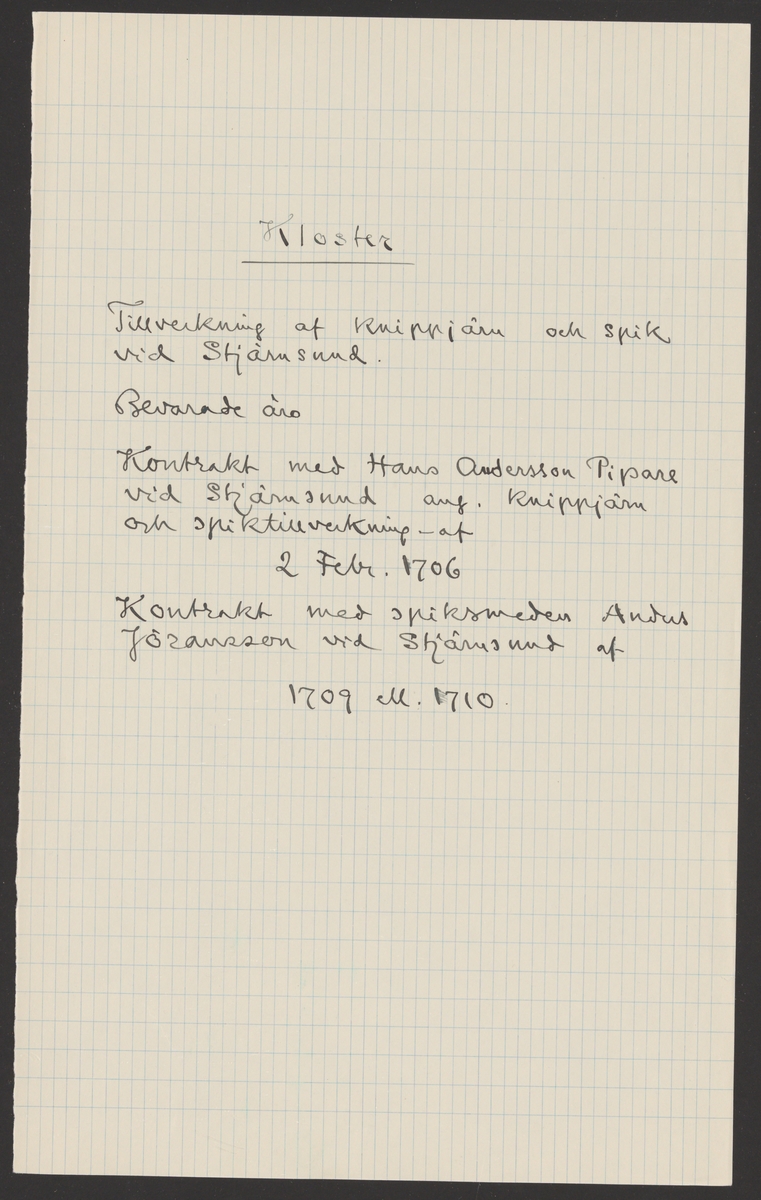 Kloster
Tillverkning af knippjärn och spik
vid Stjärnsund.
Bevarade äro
Kontrakt med Hans Andersson Pipare
vid Stjärnsund ang. knippjärn
och spiktillverkning - af
2 Febr. 1706
Kontrakt med spiksmeden Anders
Jöransson vid Stjärnsund af
1709 ell. 1710.